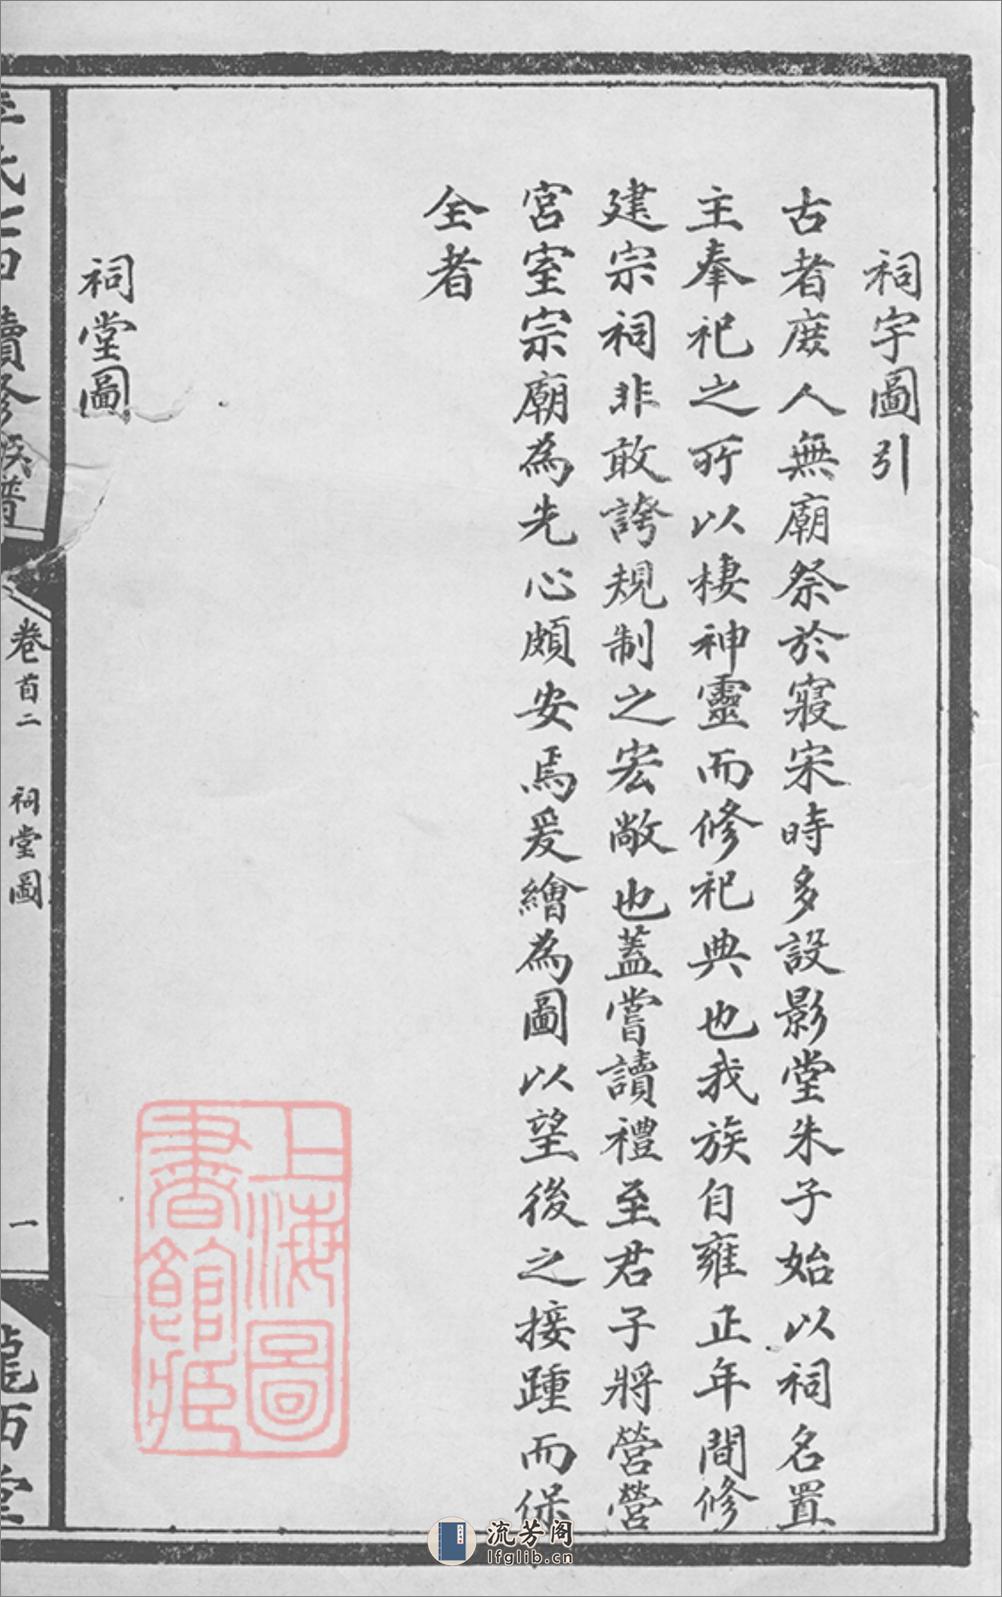 祠宇圖引
古者庶人無廟祭於寢宋時多設影堂朱子始以祠名置
主奉祀之所以棲神靈而修祀典也我族自雍正年間修
建宗祠非敢誇規制之宏敞也蓋嘗讀禮至君子將營營
宮室宗廟為先心頗安焉爰繪為圖以望後之接踵而保
全者
祠堂圖
上海圖
書館藏
氏 續修族譜
卷首二 祠堂圖
一
西堂
流芳阁
lfglib.cn